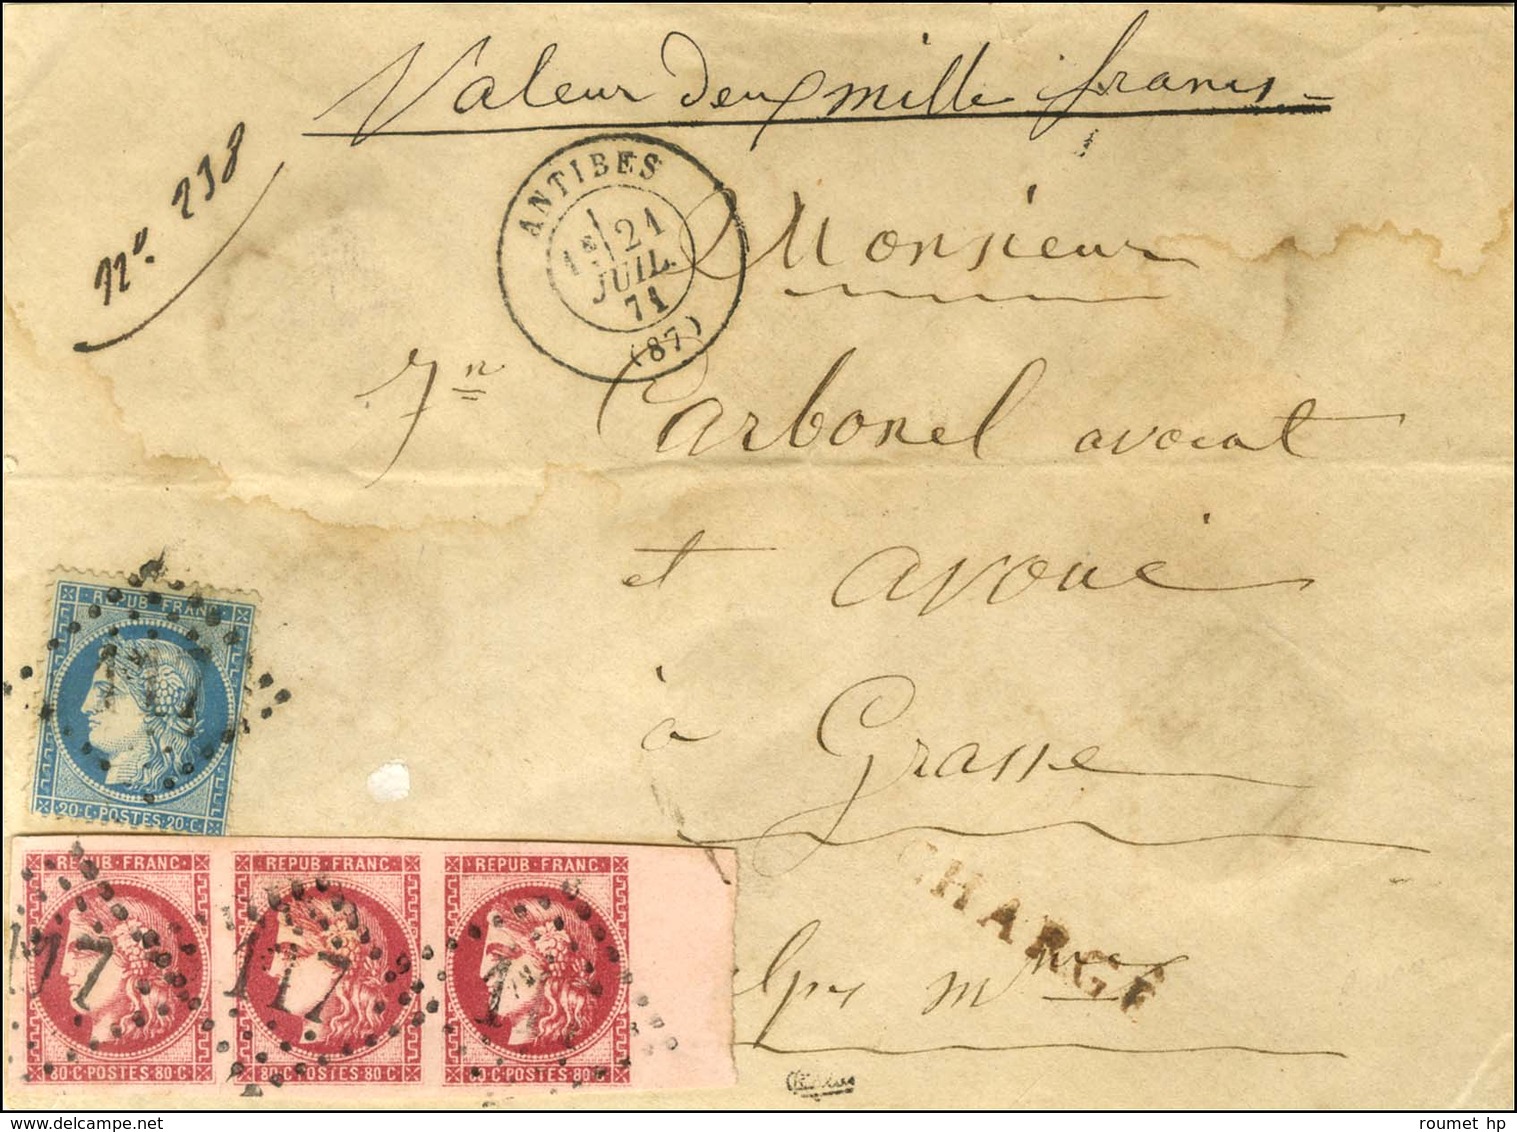 Valeur deux mille francs
N°. 238
ANTIBES
1E 21
JUIL.
71
(87)
Monsieur
Jn Carbonel avocat
et avoué
à Grasse
Alpes mmes
CHARGÉ
REPUB FRANC
20·C·POSTES·20·C
REPUB·FRANC
80·C·POSTES·80·C
117
REPUB·FRANC
80·C·POSTES·80·C
117
REPUB·FRANC
80·C·POSTES·80·C
roumet hp